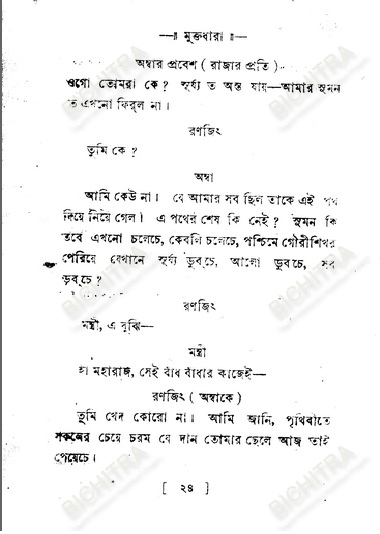 —॥ মুক্তধারা ॥—
অম্বার প্রবেশ ( রাজার প্রতি )
ওগো তোমরা কে ? সূর্য্য ত অস্ত যায়—আমার সুমন
ত এখনো ফিরল না ।
রণজিৎ
তুমি কে ?
অম্বা
আমি কেউ না । যে আমার সব ছিল তাকে এই পথ
দিয়ে নিয়ে গেল । এ পথের শেষ কি নেই ? সুমন কি
তবে এখনো চলেচে, কেবলি চলেচে, পশ্চিমে গৌরীশিখর
পেরিয়ে যেখানে সূর্য্য ডুবচে, আলো ডুবচে, সব
ডুবচে ?
রণজিৎ
মন্ত্রী, এ বুঝি—
মন্ত্রী
হাঁ মহারাজ, সেই বাঁধ বাঁধার কাজেই—
রণজিৎ ( অম্বাকে )
তুমি খেদ কোরো না । আমি জানি, পৃথিবীতে
সকলের চেয়ে চরম যে দান তোমার ছেলে আজ তাই
পেয়েচে ।
[ ২৪ ]
BICHITRA